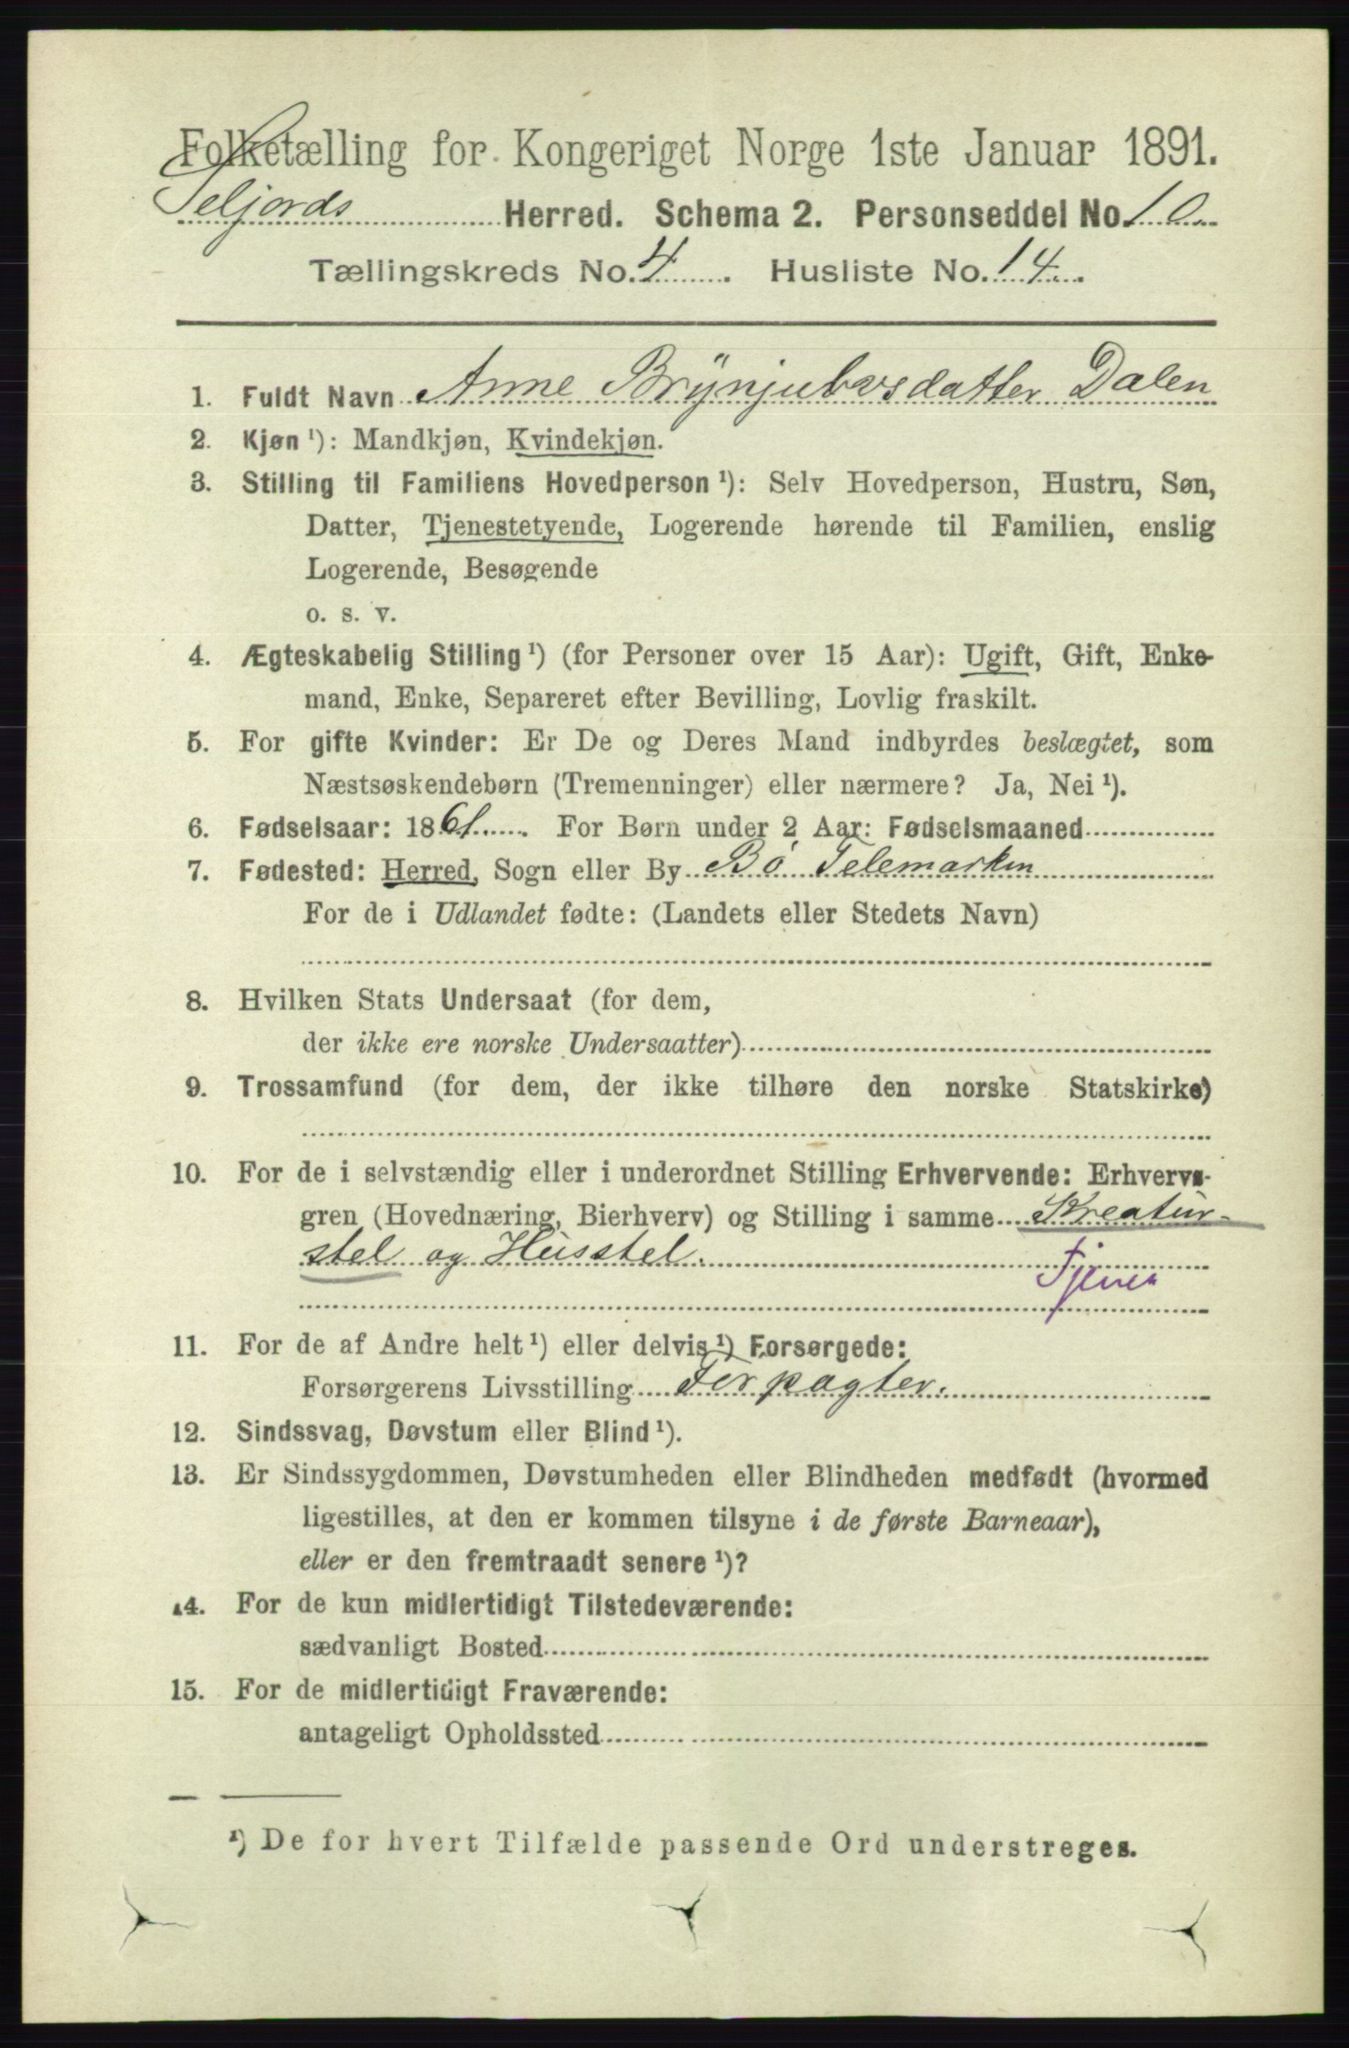 Folketælling for Kongeriget Norge 1ste Januar 1891.
Seljords Herred. Schema 2. Personseddel No. 10
Tællingskreds No. 4. Husliste No. 14.
1. Fuldt Navn Anne Brynjulvsdatter Dalen
2. Kjøn ¹): Mandkjøn, Kvindekjøn.
3. Stilling til Familiens Hovedperson ¹): Selv Hovedperson, Hustru, Søn,
Datter, Tjenestetyende, Logerende hørende til Familien, enslig
Logerende, Besøgende
o. s. v.
4. Ægteskabelig Stilling ¹) (for Personer over 15 Aar): Ugift, Gift, Enke-
mand, Enke, Separeret efter Bevilling, Lovlig fraskilt.
5. For gifte Kvinder: Er De og Deres Mand indbyrdes beslægtet, som
Næstsøskendebørn (Tremenninger) eller nærmere? Ja, Nei ¹).
6. Fødselsaar: 1861. For Børn under 2 Aar: Fødselsmaaned
7. Fødested: Herred, Sogn eller By Bø Telemarken
For de i Udlandet fødte: (Landets eller Stedets Navn)
8. Hvilken Stats Undersaat (for dem,
der ikke ere norske Undersaatter)
9. Trossamfund (for dem, der ikke tilhøre den norske Statskirke)
10. For de i selvstændig eller i underordnet Stilling Erhvervende: Erhvervs-
gren (Hovednæring, Bierhverv) og Stilling i samme Kreatur-
stel og Husstel.
Tjener
11. For de af Andre helt ¹) eller delvis ¹) Forsørgede:
Forsørgerens Livsstilling Forpagter.
12. Sindssvag, Døvstum eller Blind ¹).
13. Er Sindssygdommen, Døvstumheden eller Blindheden medfødt (hvormed
ligestilles, at den er kommen tilsyne i de første Barneaar),
eller er den fremtraadt senere ¹)?
14. For de kun midlertidigt Tilstedeværende:
sædvanligt Bosted
15. For de midlertidigt Fraværende:
antageligt Opholdssted
¹) De for hvert Tilfælde passende Ord understreges.